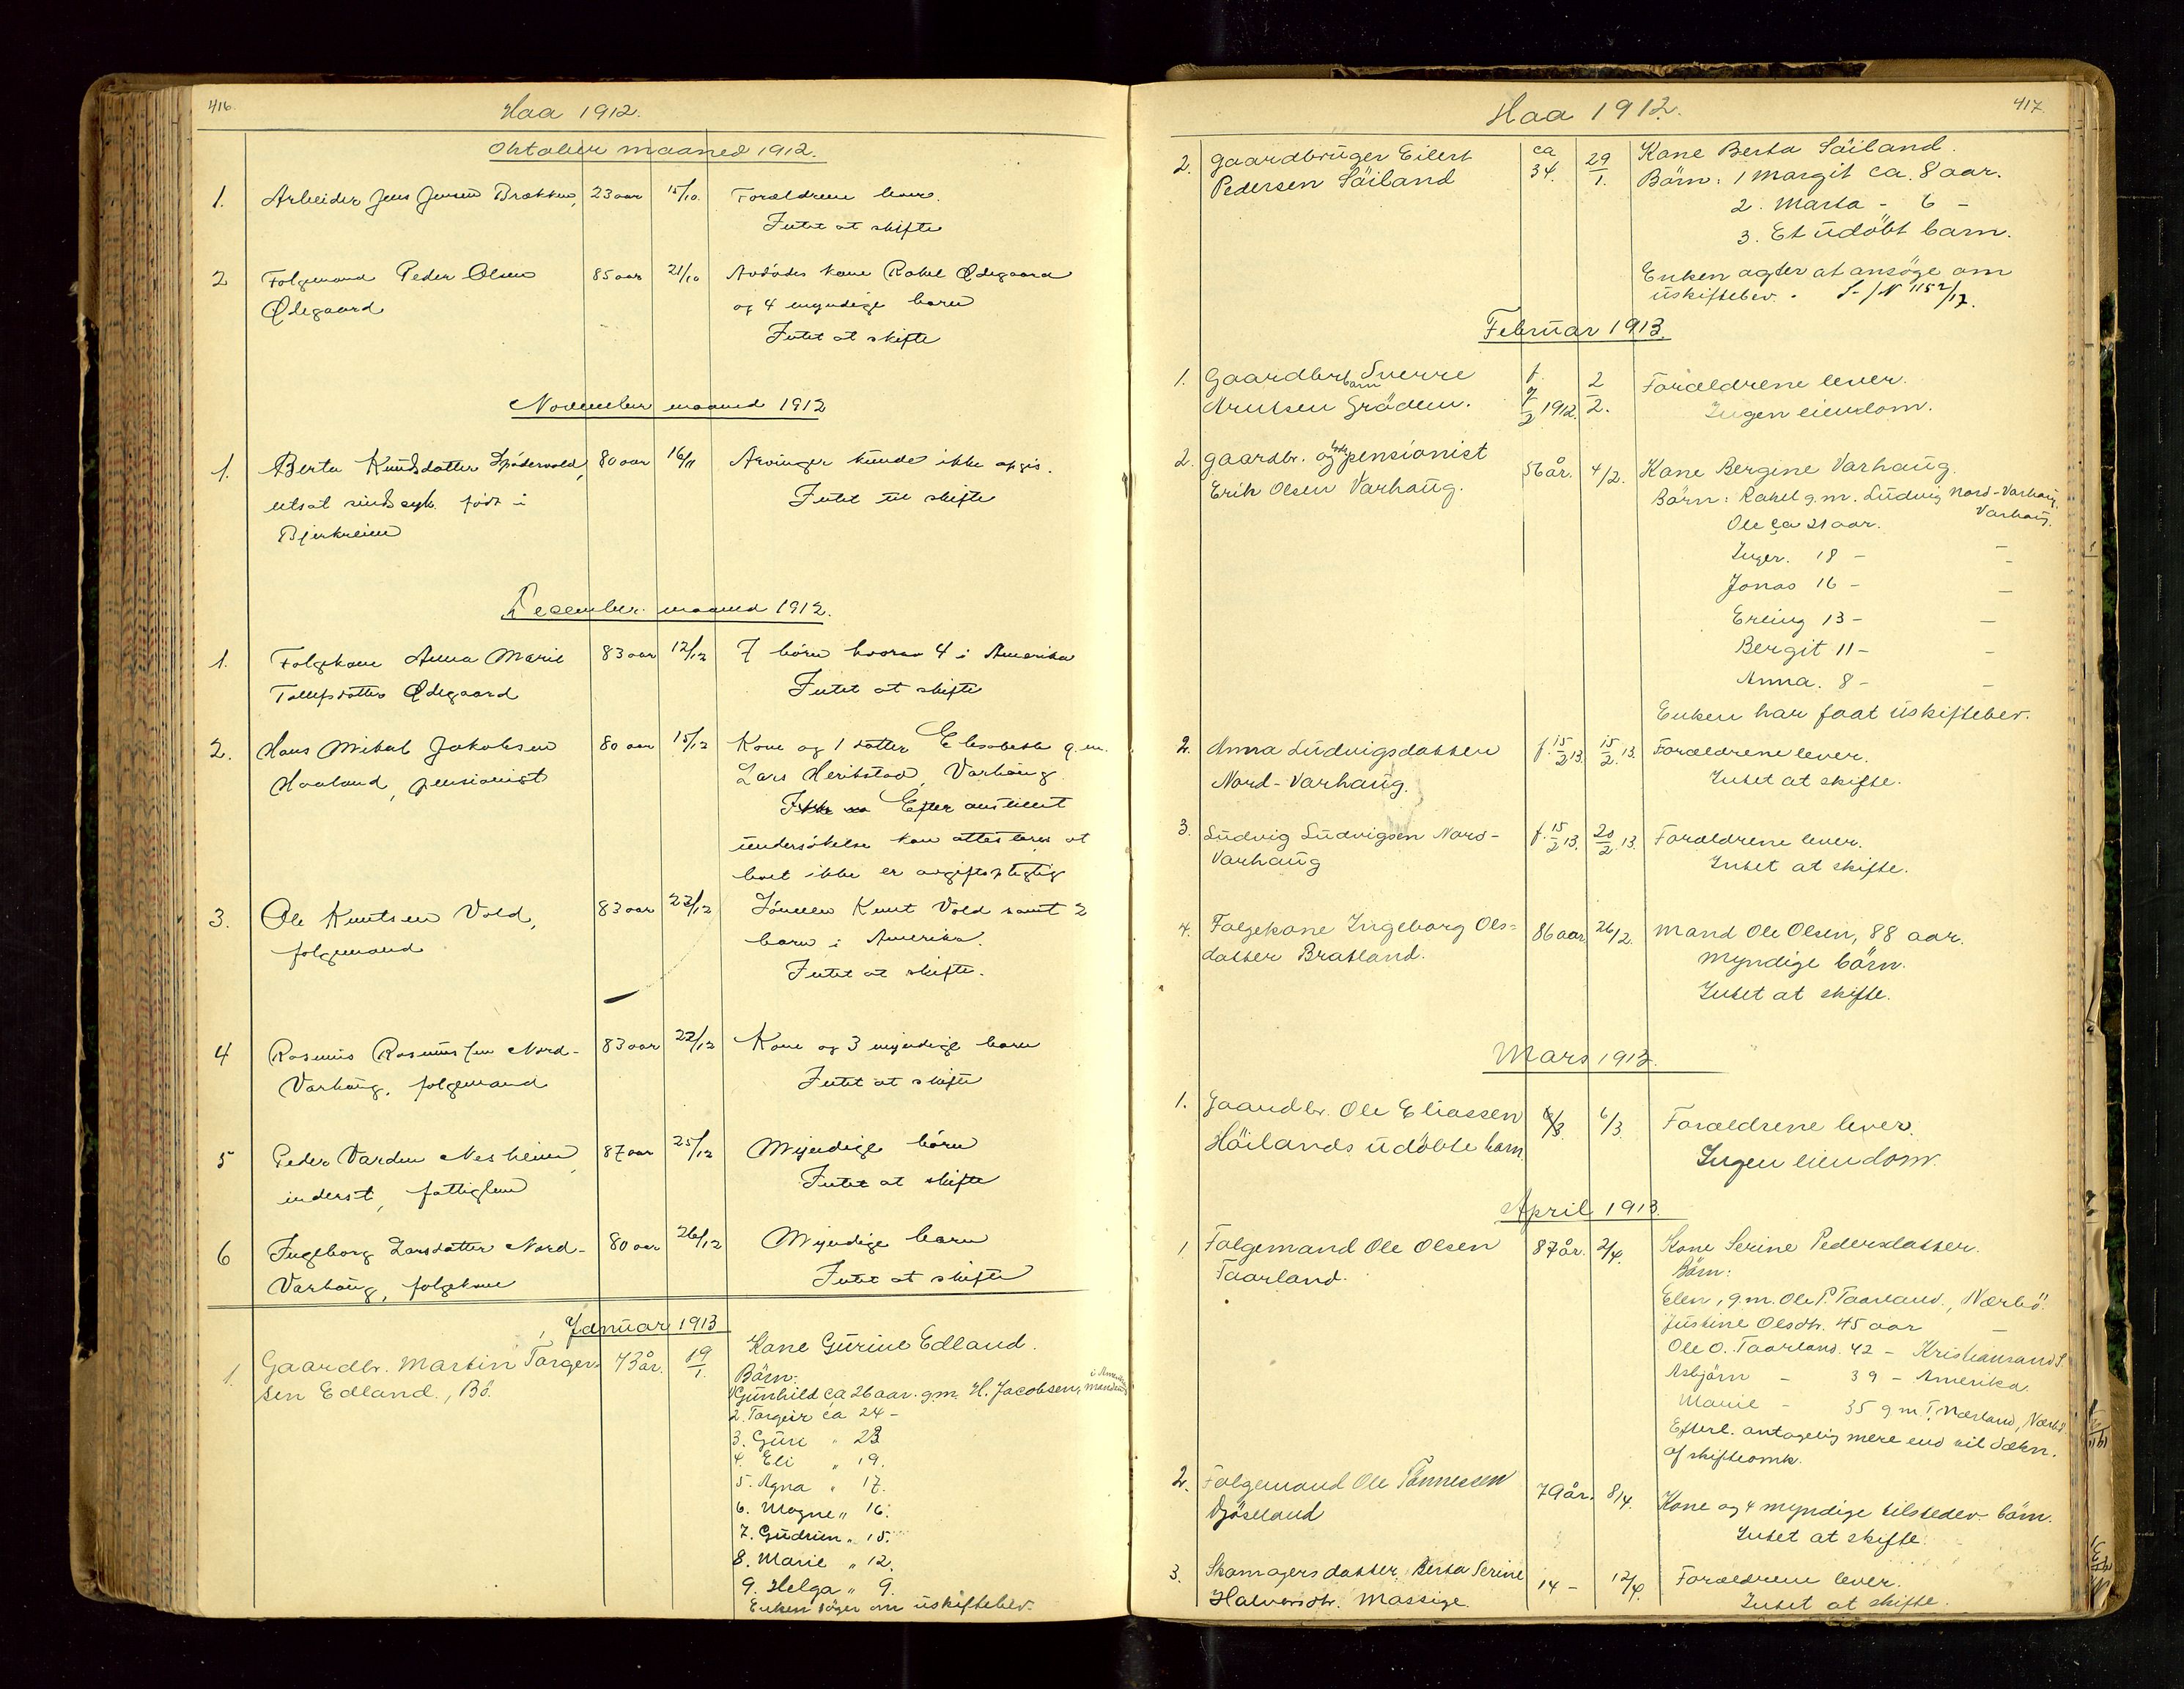 416.
Haa 1912.
Oktober maaned 1912.
1. Arbeider Jens Jensen Brækken, 23 aar 15/10. Forældrene lever.
Intet at skifte
2 Folgemand Peder Olsen 85 aar 21/10 Avdødes kone Rakel Ødegaard
Ødegaard og 4 myndige barn
Intet at skifte
November maaned 1912
1. Berta Knudsdatter 80 aar 16/11 Arvinger kunde ikke opgis.
utsat sindssyk født i Intet til skifte
Bjerkreim
December maaned 1912.
1. Folgekone Anna Marie 83 aar 12/12 7 børn hvorav 4 i Amerika
Tollefsdatter Ødegaard Intet at skifte
2. Hans Mikal Jakobsen 80 aar 15/12 Kone og 1 datter Elisabeth g.m.
Haaland, pensionist Lars Herikstad, Varhaug.
Efter anstillet
undersøkelse kan attesteres at
boet ikke er avgiftspligtig
3. Ole Knutsen Vold, 83 aar 22/12 Sønnen Knut Vold samt 2
folgemand barn i Amerika.
Intet at skifte.
4 Rasmus Rasmussen Nord- 83 aar 22/12 Kone og 3 myndige barn
Varhaug, folgemand Intet at skifte
5 Peder Varden Nesheim 87 aar 25/12 Myndige børn
inderst, fattiglem Intet at skifte
6 Ingeborg Larsdatter Nord- 80 aar 26/12 Myndige barn
Varhaug, folgekone Intet at skifte
Januar 1913
1. Gaardbr. Martin Torger- 73 år. 19/1. Kone Gurine Edland.
sen Edland, Bø. Börn:
1 Gunhild ca 26 aar. g.m. H. Jacobsen, i Amerika
2. Torgeir ca 24 -
3. Guri " 23
4. Eli " 19.
5. Agna " 17.
6. Magne " 16.
7. Gudrun " 15.
8. Marie " 12.
9. Helga " 9.
Enken söger om uskiftebev.
Haa 1912.
417
2. Gaardbruger Eilert ca 34. 29/1. Kone Berta Söiland.
Pedersen Söiland Börn: 1 Margit ca. 8 aar.
2. Marta - 6 -
3. Et udöbt barn.
Enken agter at ansöge om
uskiftebev.
Februar 1913.
1. Gaardbr barn Sverre f. 7/2 1912. 2/2. Forældrene lever.
Arntsen Gröden. Ingen eiendom.
2. gaardbr. og pensionist 56 år. 4/2. Kone Bergine Varhaug.
Erik Olsen Varhaug. Börn: Rakel g.m. Ludvig Nord-Varhaug.
Ole ca 21 aar. Varhaug.
Inger. 18 - -
Jonas 16 - -
Erling 13 - -
Bergit 11 - -
Anna. 8 - -
Enken har faat uskiftebev.
2. Anna Ludvigsdatter f. 15/2 13. 15/2. 13. Forældrene lever.
Nord-Varhaug. Intet at skifte.
3. Ludvig Ludvigsen Nord- f. 15/2 13. 20/2. 13. Forældrene lever.
Varhaug Intet at skifte.
4. Folgekone Ingeborg Ols- 86 aar. 26/2. Mand Ole Olsen, 88 aar.
datter Bratland. Myndige börn.
Intet at skifte.
Mars 1913.
1. Gaardbr. Ole Eliassen 6/3. 6/3. Forældrene lever.
Höilands udöbte barn. Ingen eiendom.
April 1913.
1 Folgemand Ole Olsen 87 år. 2/4. Kone Serine Pedersdatter.
Taarland. Börn:
Elen, g.m. Ole P. Taarland, Nærbö.
Justine Olsdtr. 45 aar -
Ole O. Taarland. 42 - Kristiansand S.
Asbjörn - 39 - Amerika.
Marie - 35 g.m. T. Nærland, Nærbö.
Efterl. antagelig mere end til dækn.
af skifteomk.
2. Folgemand Ole Tönnessen 79 år. 8/4. Kone og 4 myndige tilstedev. börn.
Intet at skifte.
3. Skomagers datter, Berta Serine 14 - 12/4. Forældrene lever.
Halvorsdtr. Mossige. Intet at skifte.